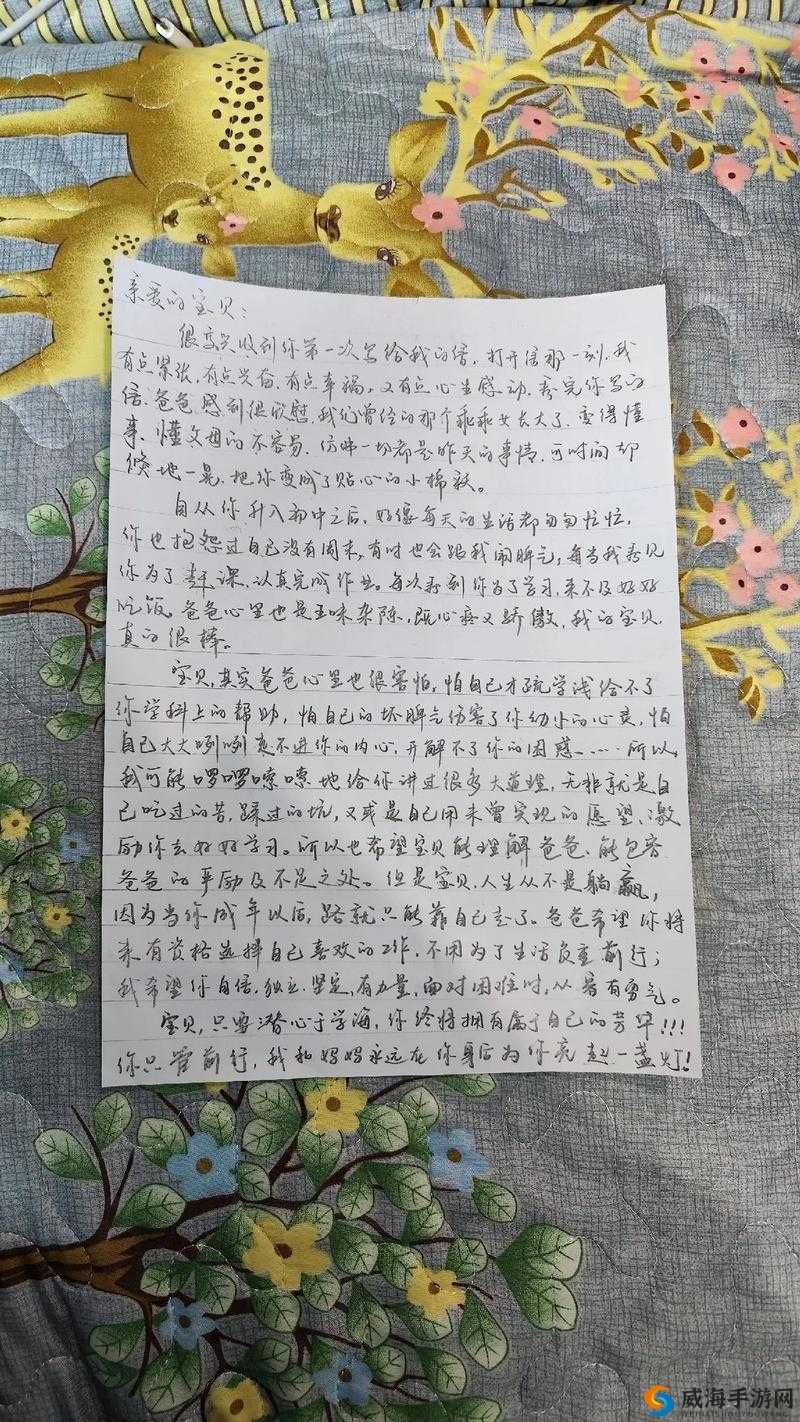 亲爱的宝贝:
很高兴收到你第一次写给我的信,打开信那一刻,我
有点紧张,有点兴奋,有点幸福,又有点心生感动,看完你写的
信,爸爸感到很欣慰,我们曾经的那个乖乖女长大了,变得懂
事、懂父母的不容易,仿佛一切都是昨天的事情,可时间却
倏地一晃,把你变成了贴心的小棉袄。
自从你升入初中之后,好像每天的生活都匆匆忙忙,
你也抱怨过自己没有周末,有时也会跟我闹脾气,每当我看见
你为了赶课,认真完成作业。每次看到你为了学习,来不及好好
吃饭。爸爸心里也是五味杂陈,既心疼又骄傲,我的宝贝,
真的很棒。
宝贝,其实爸爸心里也很害怕,怕自己才疏学浅给不了
你学科上的帮助,怕自己的坏脾气伤害了你幼小的心灵,怕
自己大大咧咧走不进你的内心,开解不了你的困惑……所以,
我可能啰啰嗦嗦地给你讲过很多大道理,无非就是自
己吃过的苦,踩过的坑,又或是自己用未曾实现的愿望、激
励你去好好学习。所以也希望宝贝能理解爸爸、能包容
爸爸的严励及不足之处。但是宝贝,人生从不是躺赢,
因为当你成年以后,路就只能靠自己走了。爸爸希望你将
来有资格选择自己喜欢的工作,不用为了生活负重前行;
我希望你自信、独立、坚定,有力量,面对困难时,从容有勇气。
宝贝,只要潜心于学海,你终将拥有属于自己的芳华!!!
你只管前行,我和妈妈永远在你身后为你亮起一盏灯!
威海手游网